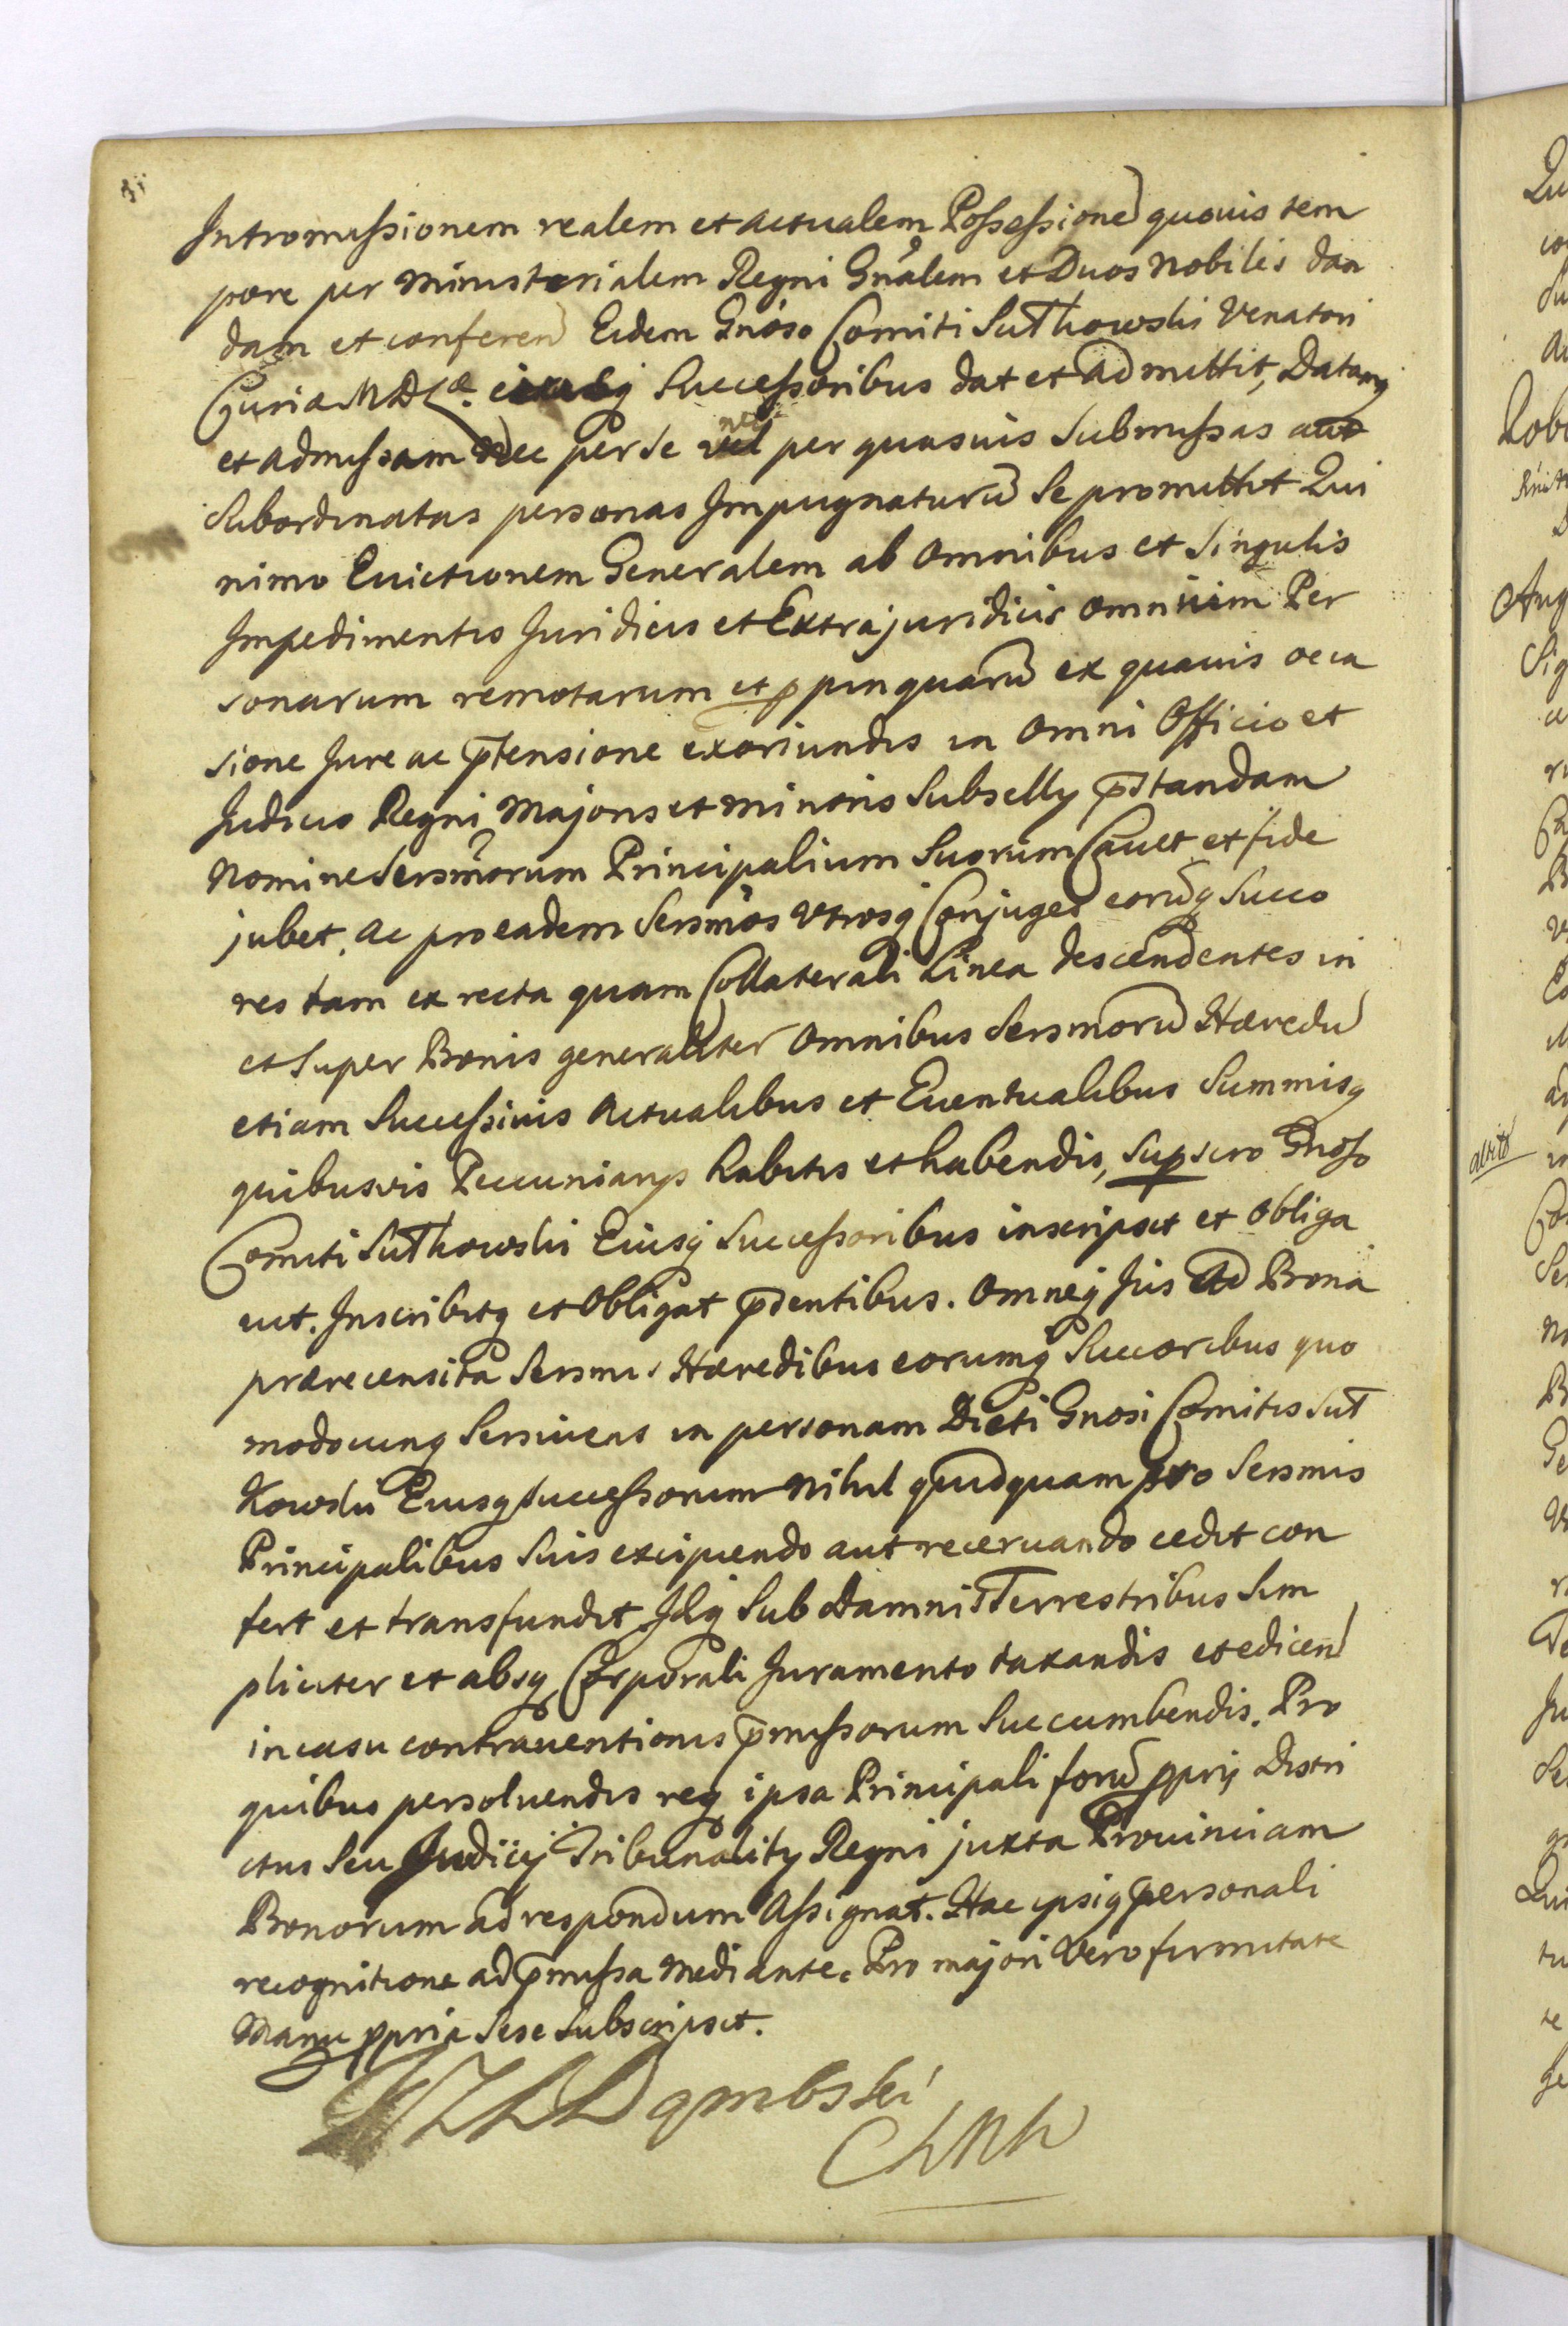 Intromissionem realem et actualem Possessione quovis tem
pore per Ministerialem Regni Gnalem et Duos Nobiles dan
dam et conferen Eidem Gnoso Comiti Sutkowski Venatori
Curiæ MDLæ. Successoribus dat et admittit, Datamq
et admissam nec per se nec per quasvis Submissas aut
Subordinatas personas Impugnaturũ Se promittit Qui
nimo Evictionem Generalem ab Omnibus et Singulis
Impedimentis Juridicis et Extrajuridicis omnium Per
sonarum remotarum et ppinquarũ ex quavis occa
sione Jure ac p̄tensione exoriundis in Omni Officio et
Judicio Regni Majoris et minoris Subsellÿ p̄standam
Nomine Sersmorum Principalium Suorum Cavet et fide
jubet. Ac pro eadem Sersmos Utrosq Conjuges eorũq Succo
res tam ex recta quam Collaterali Linea descendentes in
et Super Bonis generaliter Omnibus Sersmorũ Hæredũ
etiam Successivis Actualibus et Eventualibus Summisq
quibusvis Pecuniarÿs habitis et habendis, Gnoso
Comiti Sutkowski Eiusq Successoribus inscripsit et Obliga
vit. Inscribitq et Obligat p̄dentibus. Omneq Jus Ad Bona
prærecensita Sersmis Hæredibus eorumq Succoribus quo
modocunq Serviens in personam Dicti Gnosi Comitis Sut
kowski Eiusq Successorum Nihil quidquam pro Sersmis
Principalibus Suis excipiendo aut reservando cedit con
fert et transfundit Idq Sub Damnis Terrestribus Sim
pliciter et absq Corporali Juramento taxandis et edicen
in casu contraventionis p̄missorum Succumbendis. Pro
quibus persolvendis req ipsa Principali forũ pprij Distri
ctus Seu Judicij Tribunalitÿ Regni juxta Provinciam
Bonorum ad respondum Assignat. Hac ipsiq personali
recognitione ad p̄missa Mediante. Pro majori Vero firmitate
Manu ppria Sese Subscripsit.
Dąmbski
altitẽ